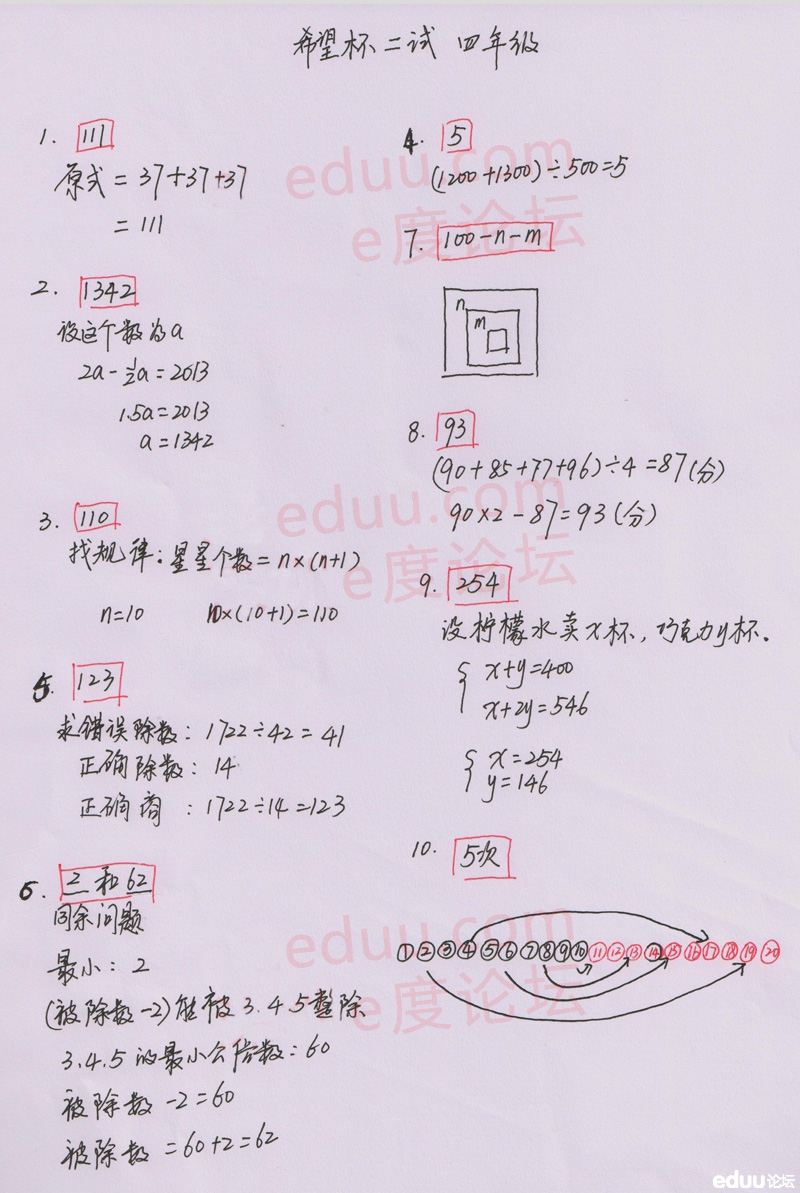 希望杯二试 四年级
1. 111
原式 = 37+37+37
= 111
2. 1342
设这个数为a
2a-½a=2013
1.5a=2013
a=1342
3. 110
找规律:星星个数=n×(n+1)
n=10 10×(10+1)=110
5. 123
求错误除数: 1722÷42=41
正确除数: 14
正确商 : 1722÷14=123
6. 2 和 62
同余问题
最小: 2
(被除数-2)能被 3.4.5整除
3.4.5的最小公倍数:60
被除数 -2=60
被除数 =60+2=62
4. 5
(1200+1300)÷500=5
7. 100-n-m
n
m
8. 93
(90+85+77+96)÷4=87(分)
90×2-87=93(分)
9. 254
设柠檬水卖x杯,巧克力y杯。
x+y=400
x+2y=546
x=254
y=146
10. 5次
① ② ③ ④ ⑤ ⑥ ⑦ ⑧ ⑨ ⑩ ⑪ ⑫ ⑬ ⑭ ⑮ ⑯ ⑰ ⑱ ⑲ ⑳
eduu.com
e度论坛
eduu.com
e度论坛
eduu.com
e度论坛
eduu论坛